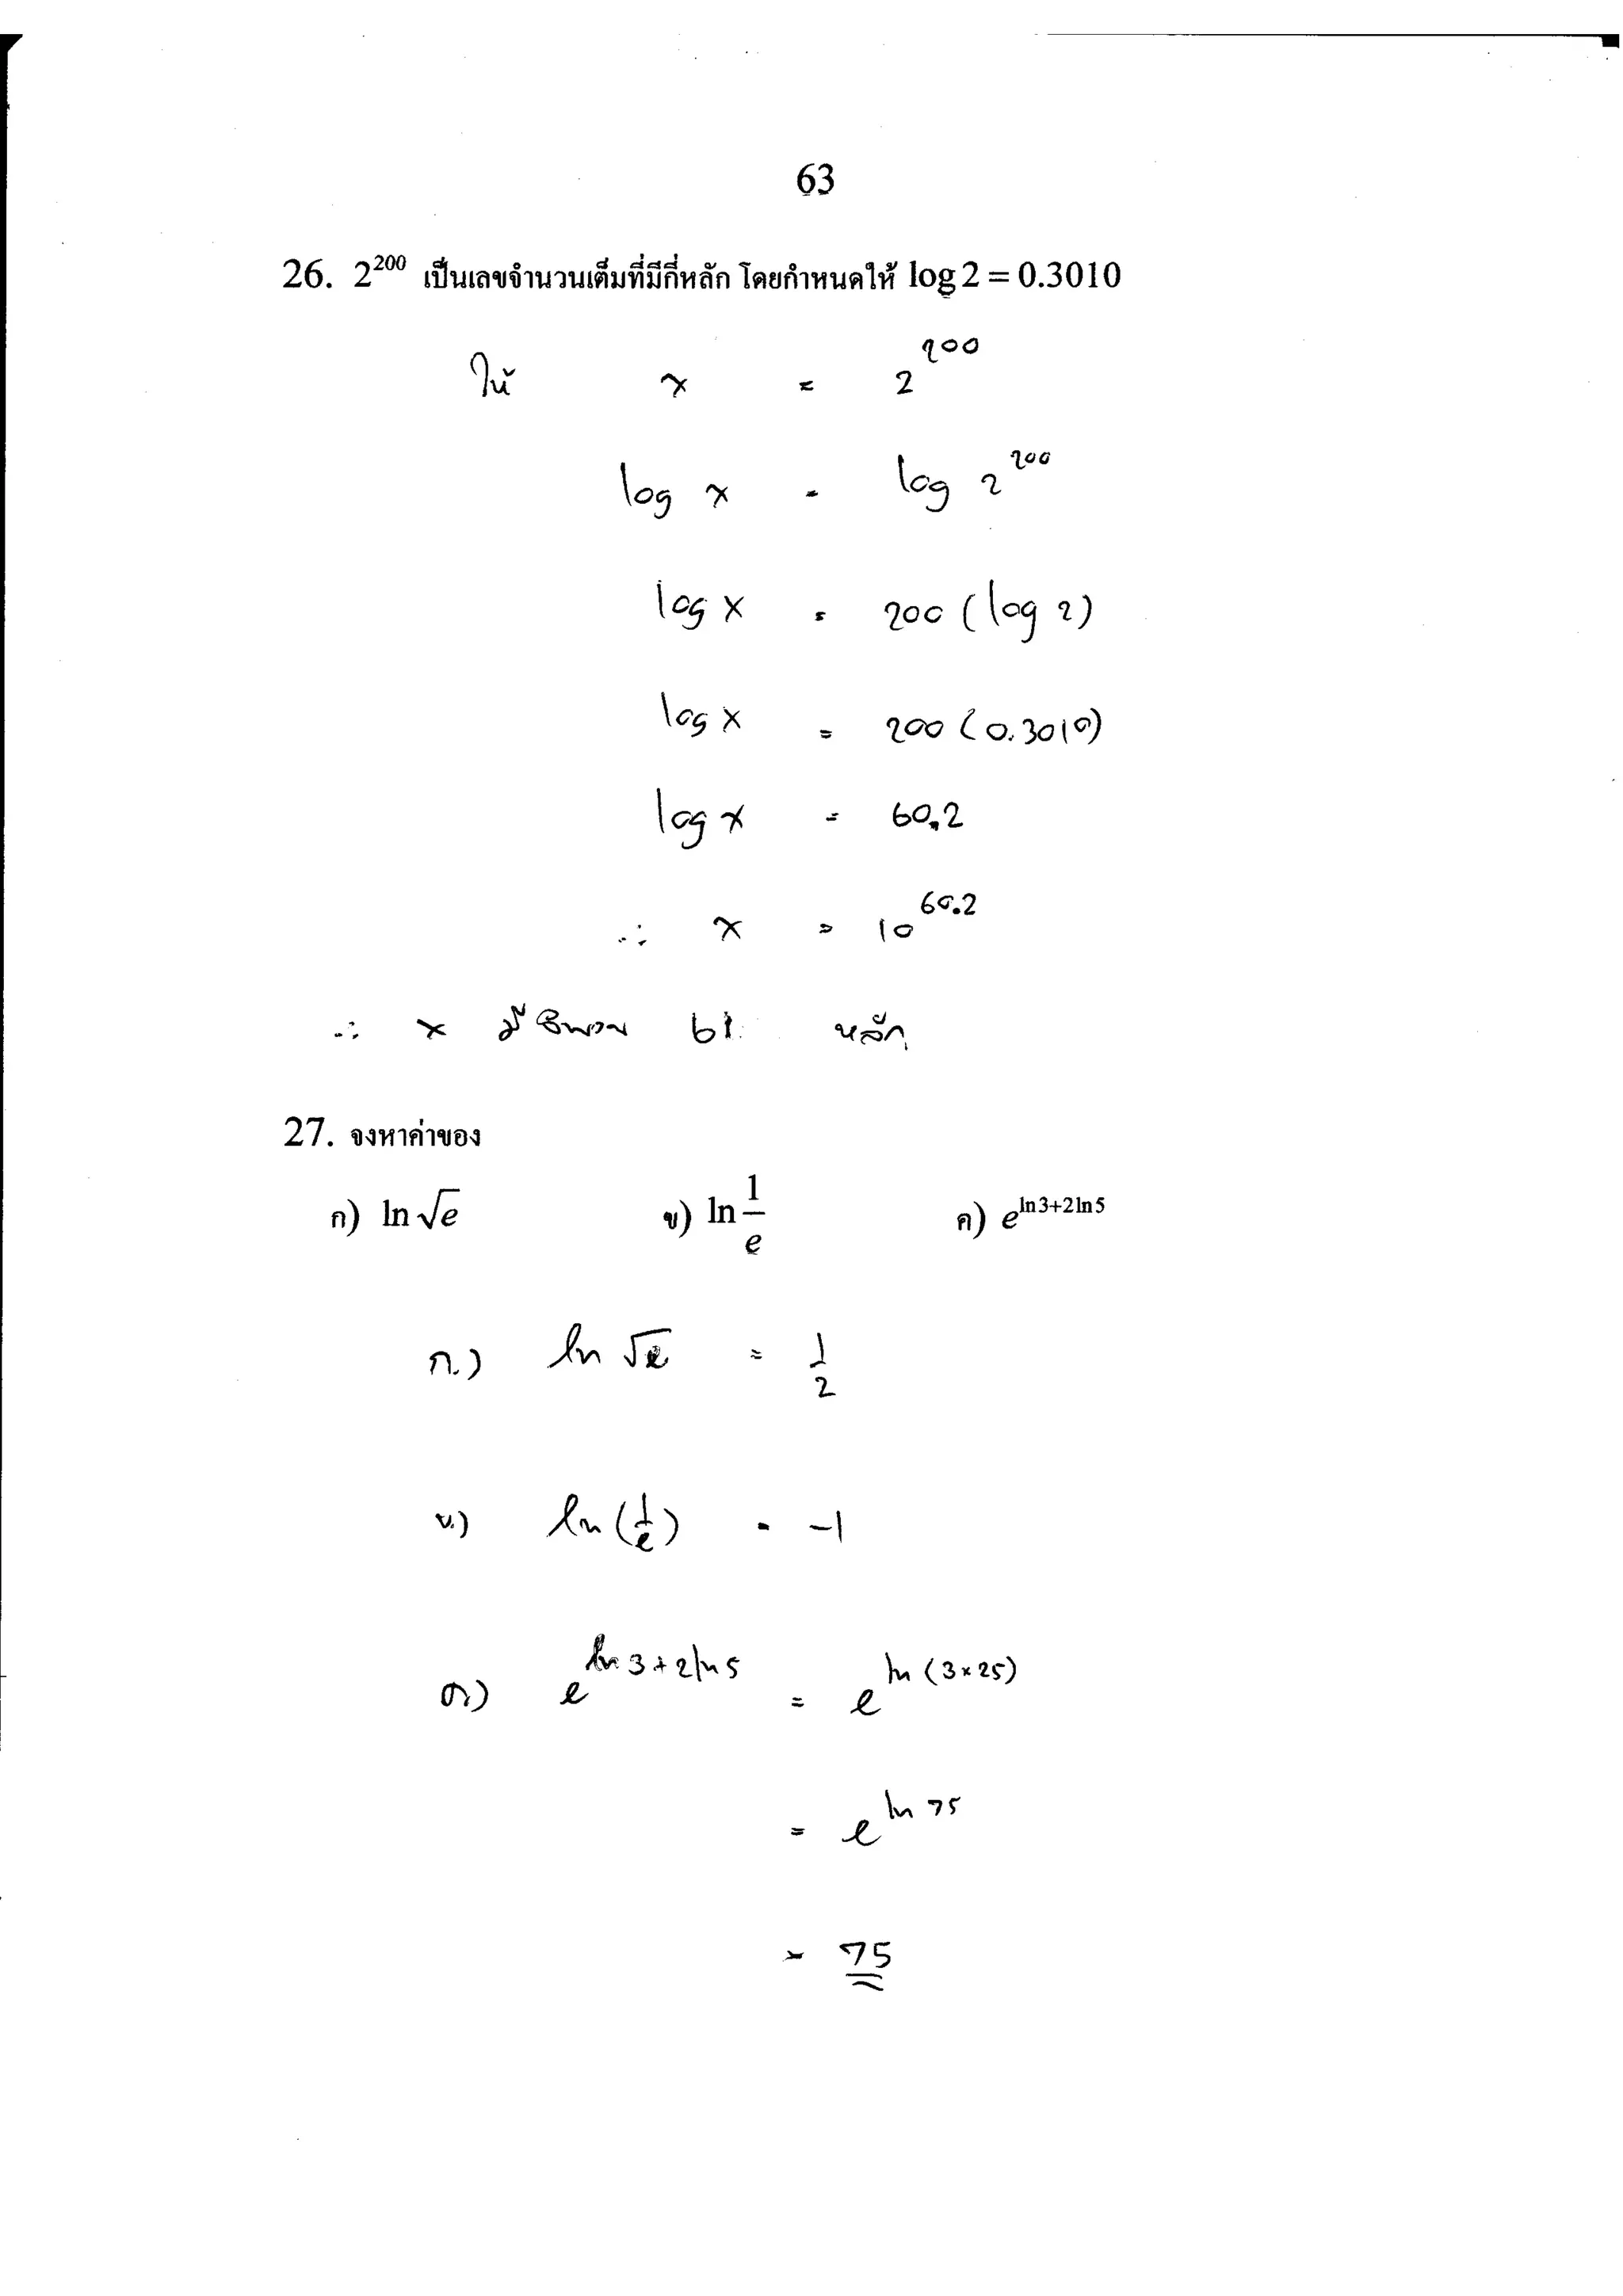 63
26. 2^200 เป็นเลขจำนวนเต็มที่มีกี่หลัก โดยกำหนดให้ log 2 = 0.3010
ให้ x = 2^200
log x = log 2^200
log x = 200 (log 2)
log x = 200 (0.3010)
log x = 60.2
∴ x = 10^60.2
∴ x มีจำนวน 61 หลัก
27. จงหาค่าของ
ก) ln √e ข) ln 1/e ค) e^ln3+2ln5
ก.) ln √e = 1/2
ข.) ln (1/e) = -1
ค) e^ln 3+2ln 5 = e^ln (3×25)
= e^ln 75
= 75